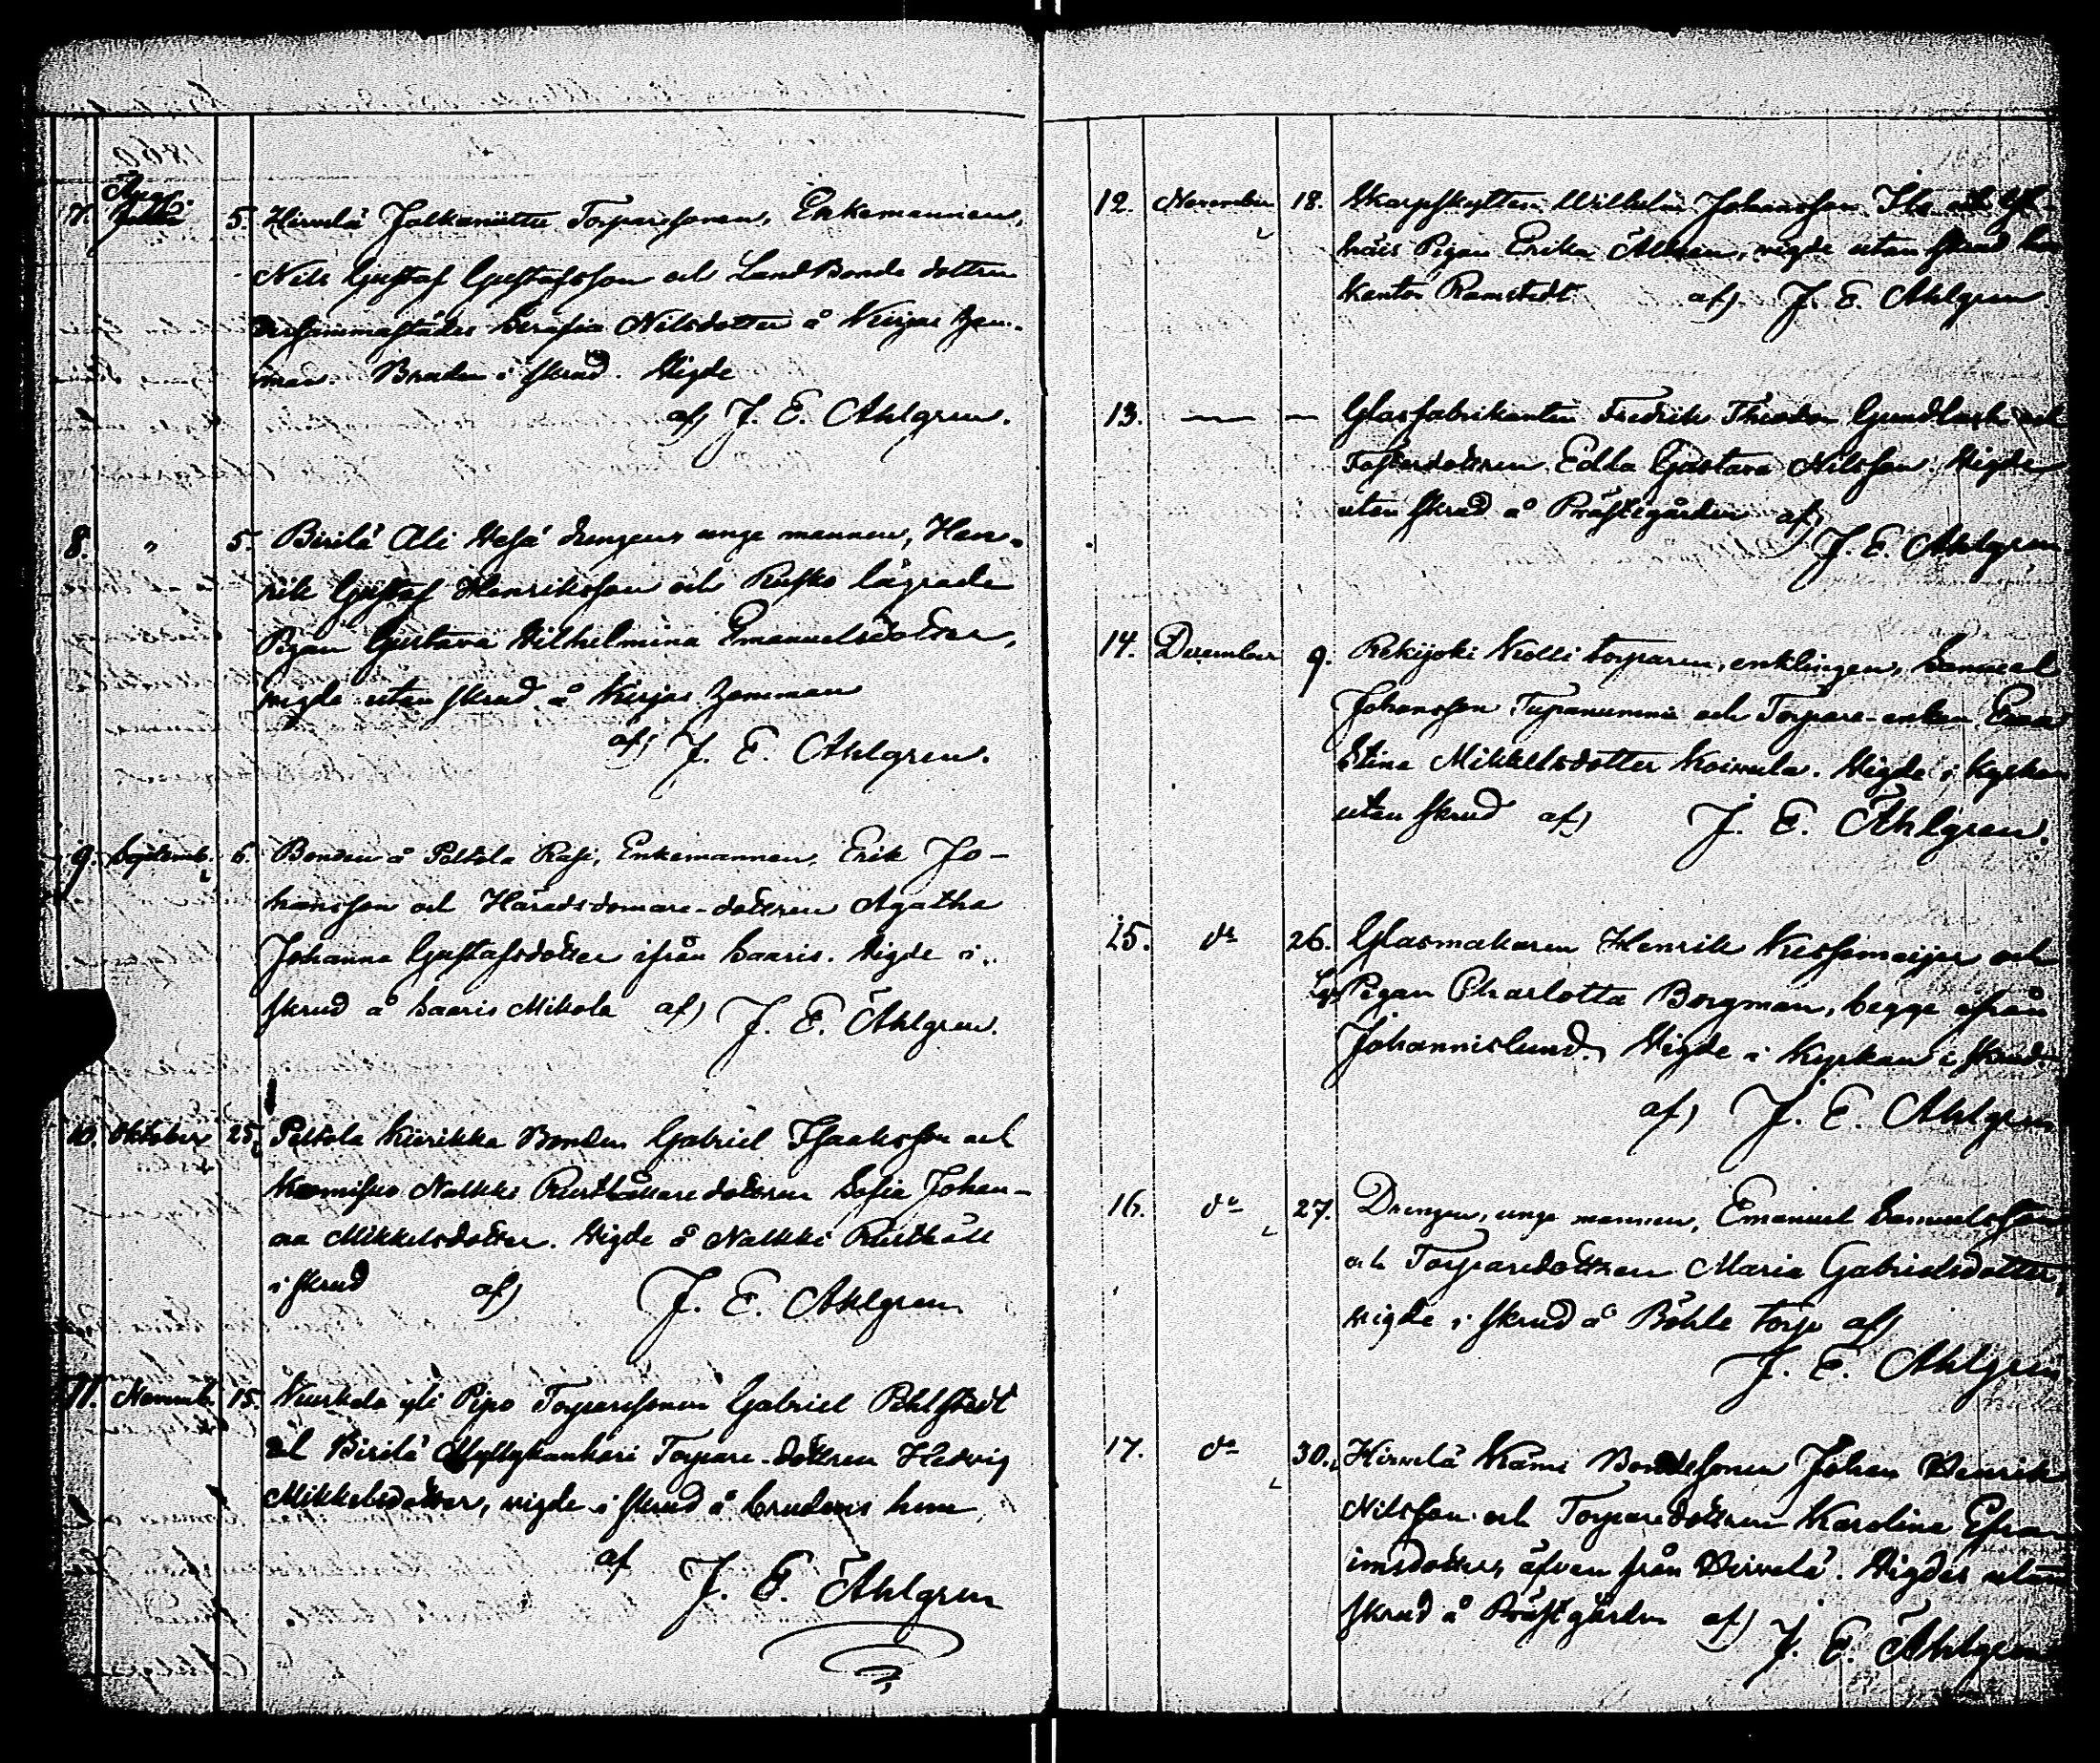 Aug.
7. 5. Hirvelä Jalkaniittu Torparesonen, Enkemannen,
Nils Gustaf Gustafsson och Landbonde dottren
dersammastädes Serafia Nilsdotter å Kirjas hem-
man. Bruden i skrud. Vigde
af J. E. Ahlgren.
8. " 5. Birilä Ali Hesá drengen unge mannen, Hen-
rik Gustaf Henriksson och Rusko lägrade
Pigan Gustava Vilhelmina Emanuelsdotter,
vigde utan skrud å Kirjas hemman
af J. E. Ahlgren.
9. Septemb. 6. Bonden å Peltola Rasi, Enkemannen, Erik Jo-
hansson och Häradsdomare-dottren Agatha
Johanna Gustafsdotter ifrån Saaris. Vigde i
skrud å Saaris Mikola af J. E. Ahlgren.
10. Oktober 25. Peltola Kiirikka Bonden Gabriel Isaaksson och
Nalkki Rusthållare dottren Sofia Johan-
na Mikkelsdotter. Vigde å Nalkki Rusthåll
i skrud af J. E. Ahlgren
11. Novemb. 15. Kuskela yli Pipo Torparesonen Gabriel Pohlstedt
och Birilä Myllykankari Torpare-dottren Hedvig
Mikkelsdotter, vigde i skrud å brudens hem
af J. E. Ahlgren
12. November 18. Skarpskytten Wilhelm Johansson och
Pigan Erika vigde utan skrud hos
Kantor Ramstedt af J. E. Ahlgren
13. — — Glasfabrikanten Fredrik Theodor Gundlach och
Fosterdottren Edla Gustava Nilsson. Vigde
utan skrud å Prästegården af
J. E. Ahlgren
14. December 9. Rekijoki Kolli torparen, enklingen, Samuel
Johansson Tupanummi och Torpare-enkan Eva
Stina Mikkelsdotter Koivula. Vigde i Kyrkan
utan skrud af J. E. Ahlgren.
15. do 26. Glasmakaren Henrik Kessemeijer och
Lgr Pigan Charlotta Borgman, begge ifrån
Johannislund. Vigde i Kyrkan i skrud
af J. E. Ahlgren
16. do 27. Drengen, unge mannen, Emanuel Samuelsson
och Torparedottren Maria Gabrielsdotter,
vigde i skrud å Böhle torp af
J. E. Ahlgren
17. do 30. Hirvelä Kämi Bondesonen Johan Henrik
Nilsson och Torparedottren Karolina Efra-
imsdotter, äfven från Hirvelä. Vigdes utan
skrud å Prästgården af J. E. Ahlgren